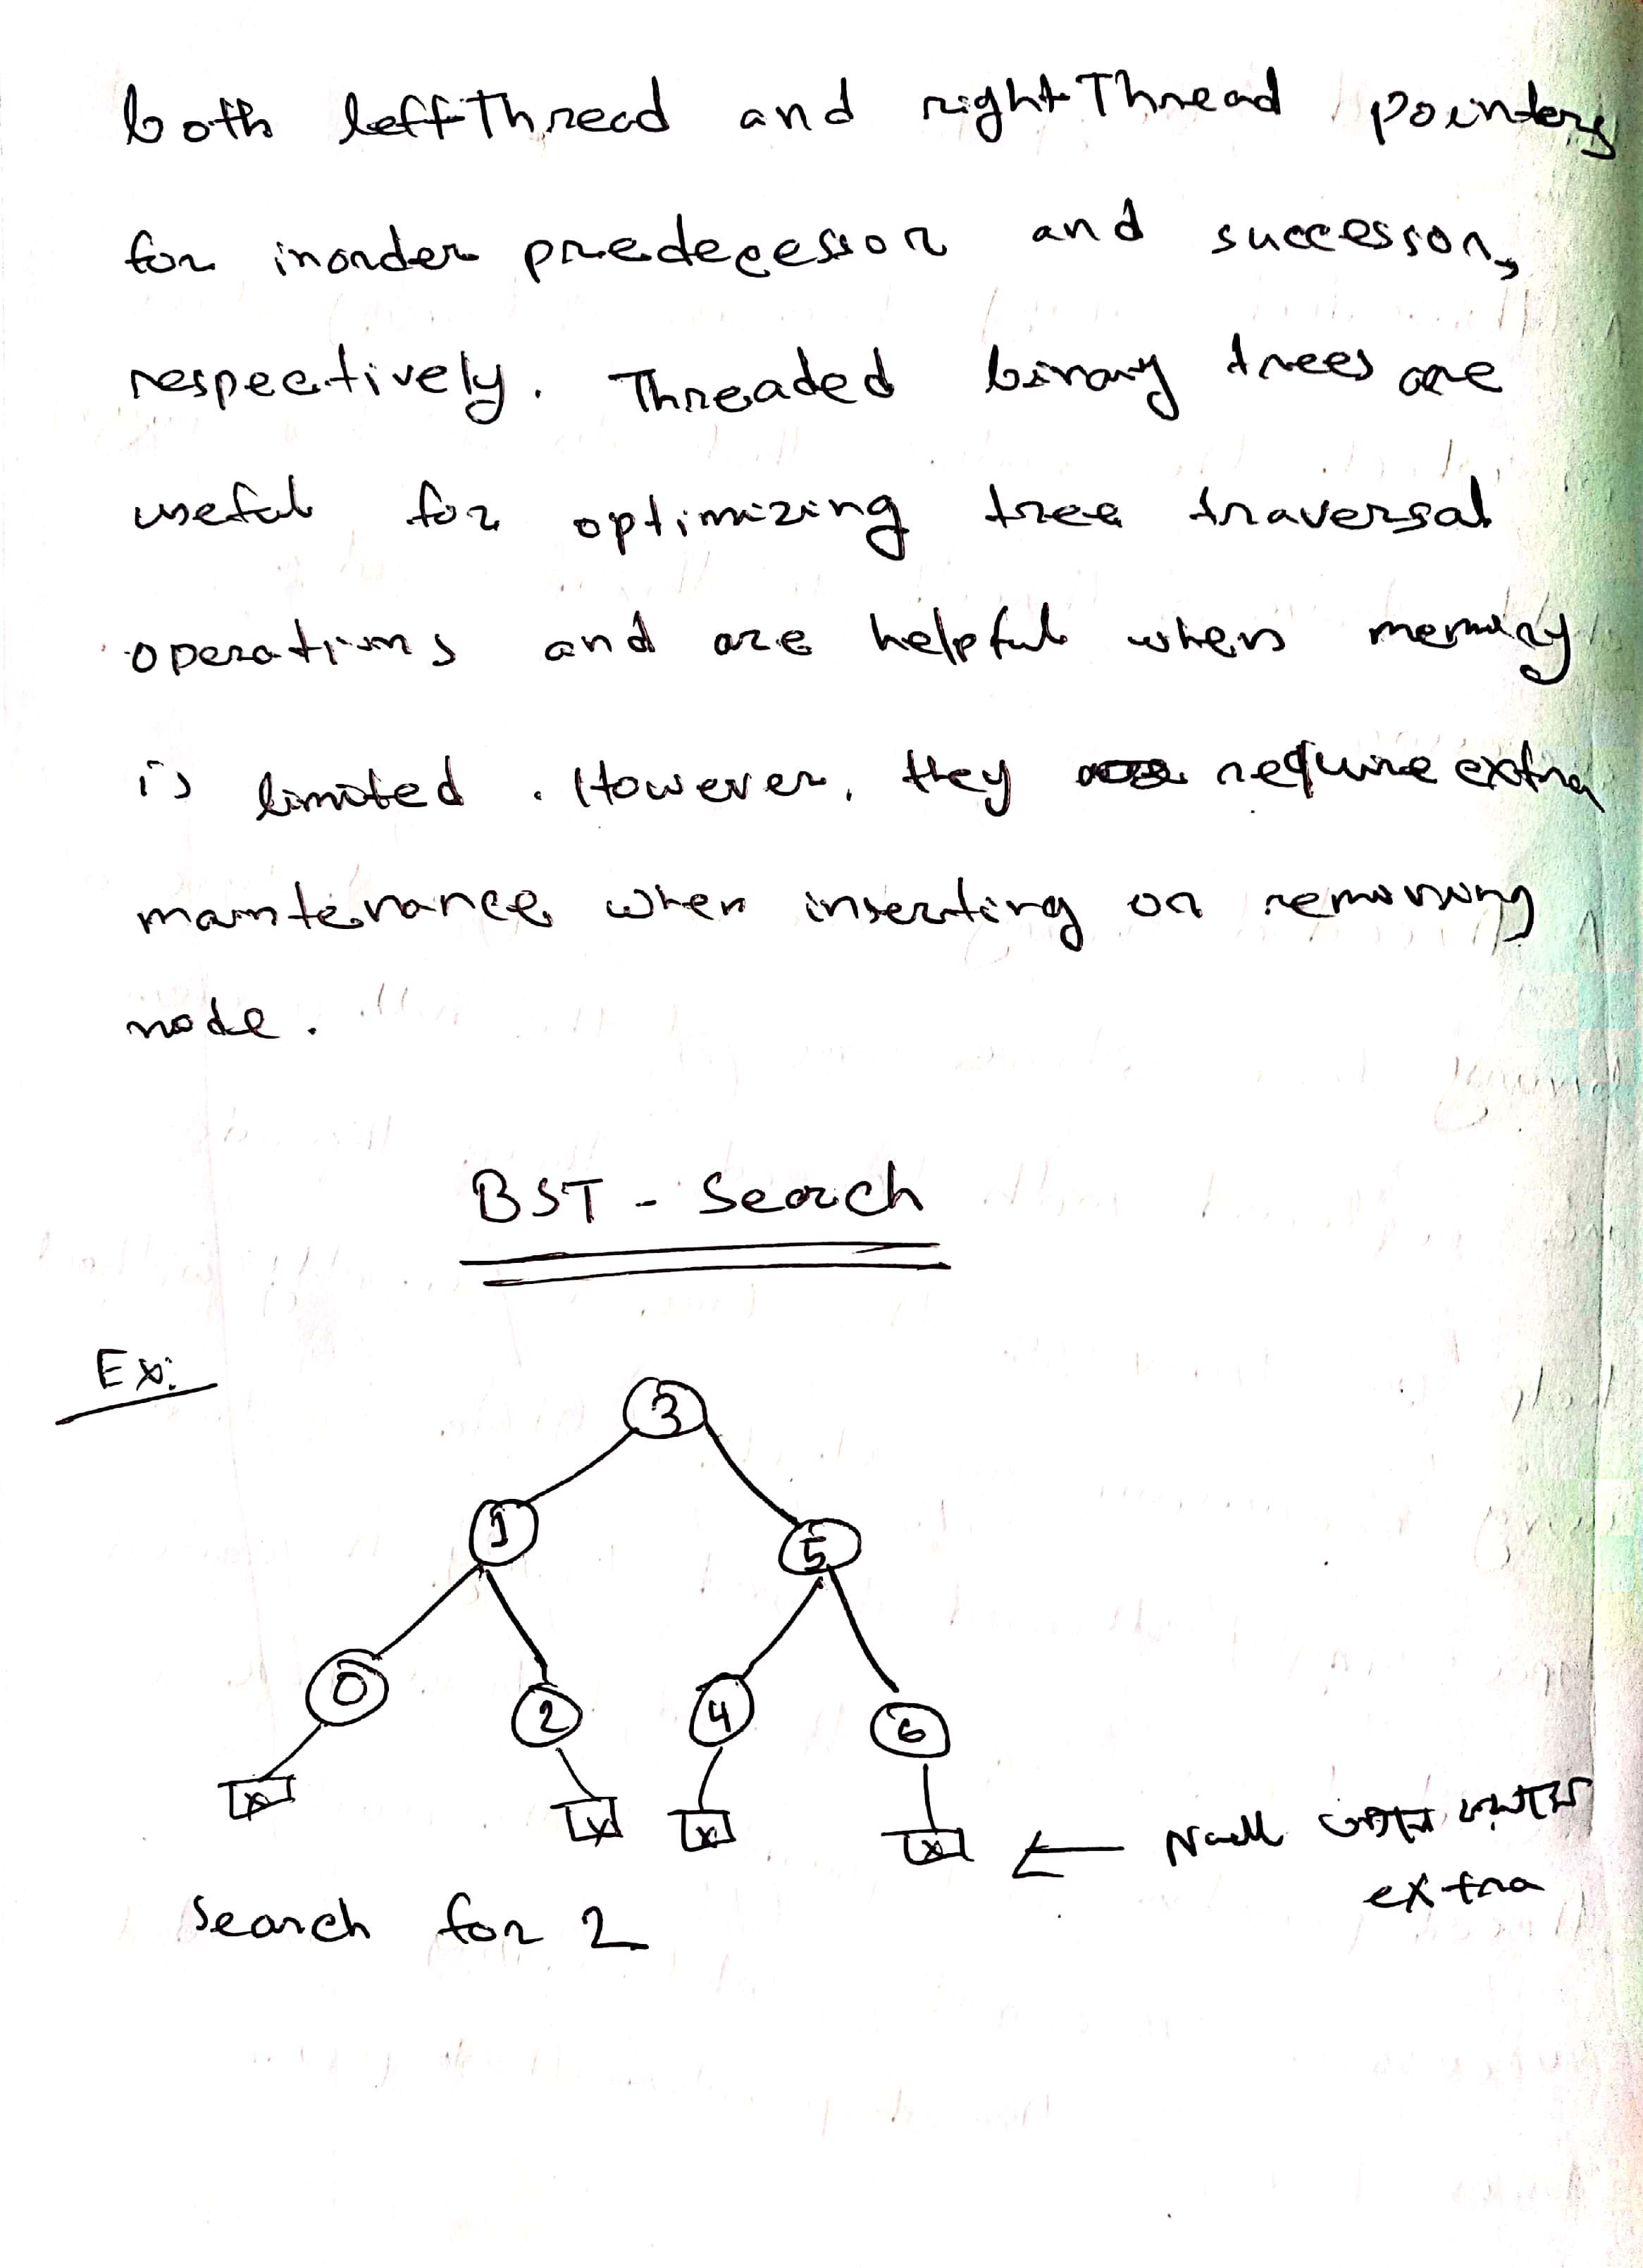 both leftThread and rightThread pointers
for inorder predecessor and successor,
respectively. Threaded binary trees are
useful for optimizing tree traversal
operations and are helpful when memory
is limited. However, they require extra
maintenance when inserting or removing
node.
BST - Search
Ex:
3
1
5
0
2
4
6
x
x
x
x
← Null
extra
Search for 2